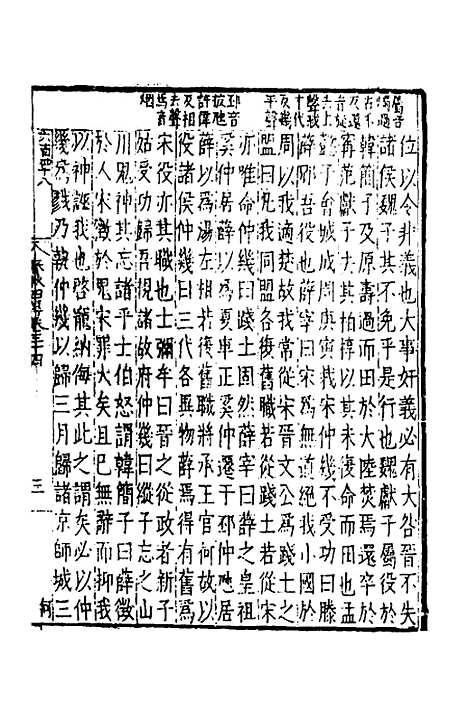 位以令非義也大事奸義必有大咎晉不失
諸侯魏子其不免乎是行也魏獻子屬役於
韓簡子及原壽過而田於大陸焚焉還卒於
甯范獻子去其柏椁以其未復命而田也孟
懿子會城成周庚寅栽宋仲幾不受功曰滕
薛郳吾役也薛宰曰宋爲無道絕我小國於
周以我適楚故我常從宋晉文公爲踐土之
盟曰凡我同盟各復舊職若從踐土若從宋
亦唯命仲幾曰踐土固然薛宰曰薛之皇祖
奚仲居薛以爲夏車正奚仲遷于邳仲虺居
薛以爲湯左相若復舊職將承王官何故以
役諸侯仲幾曰三代各異物薛焉得有舊爲
宋役亦其職也士彌牟曰晉之從政者新子
姑受功歸吾視諸故府仲幾曰縱子忘之山
川鬼神其忘諸乎士伯怒謂韓簡子曰薛徵
於人宋徵於鬼宋罪大矣且已無辭而抑我
以神誣我也啓寵納侮其此之謂矣必以仲
幾爲戮乃執仲幾以歸三月歸諸京師城三
三